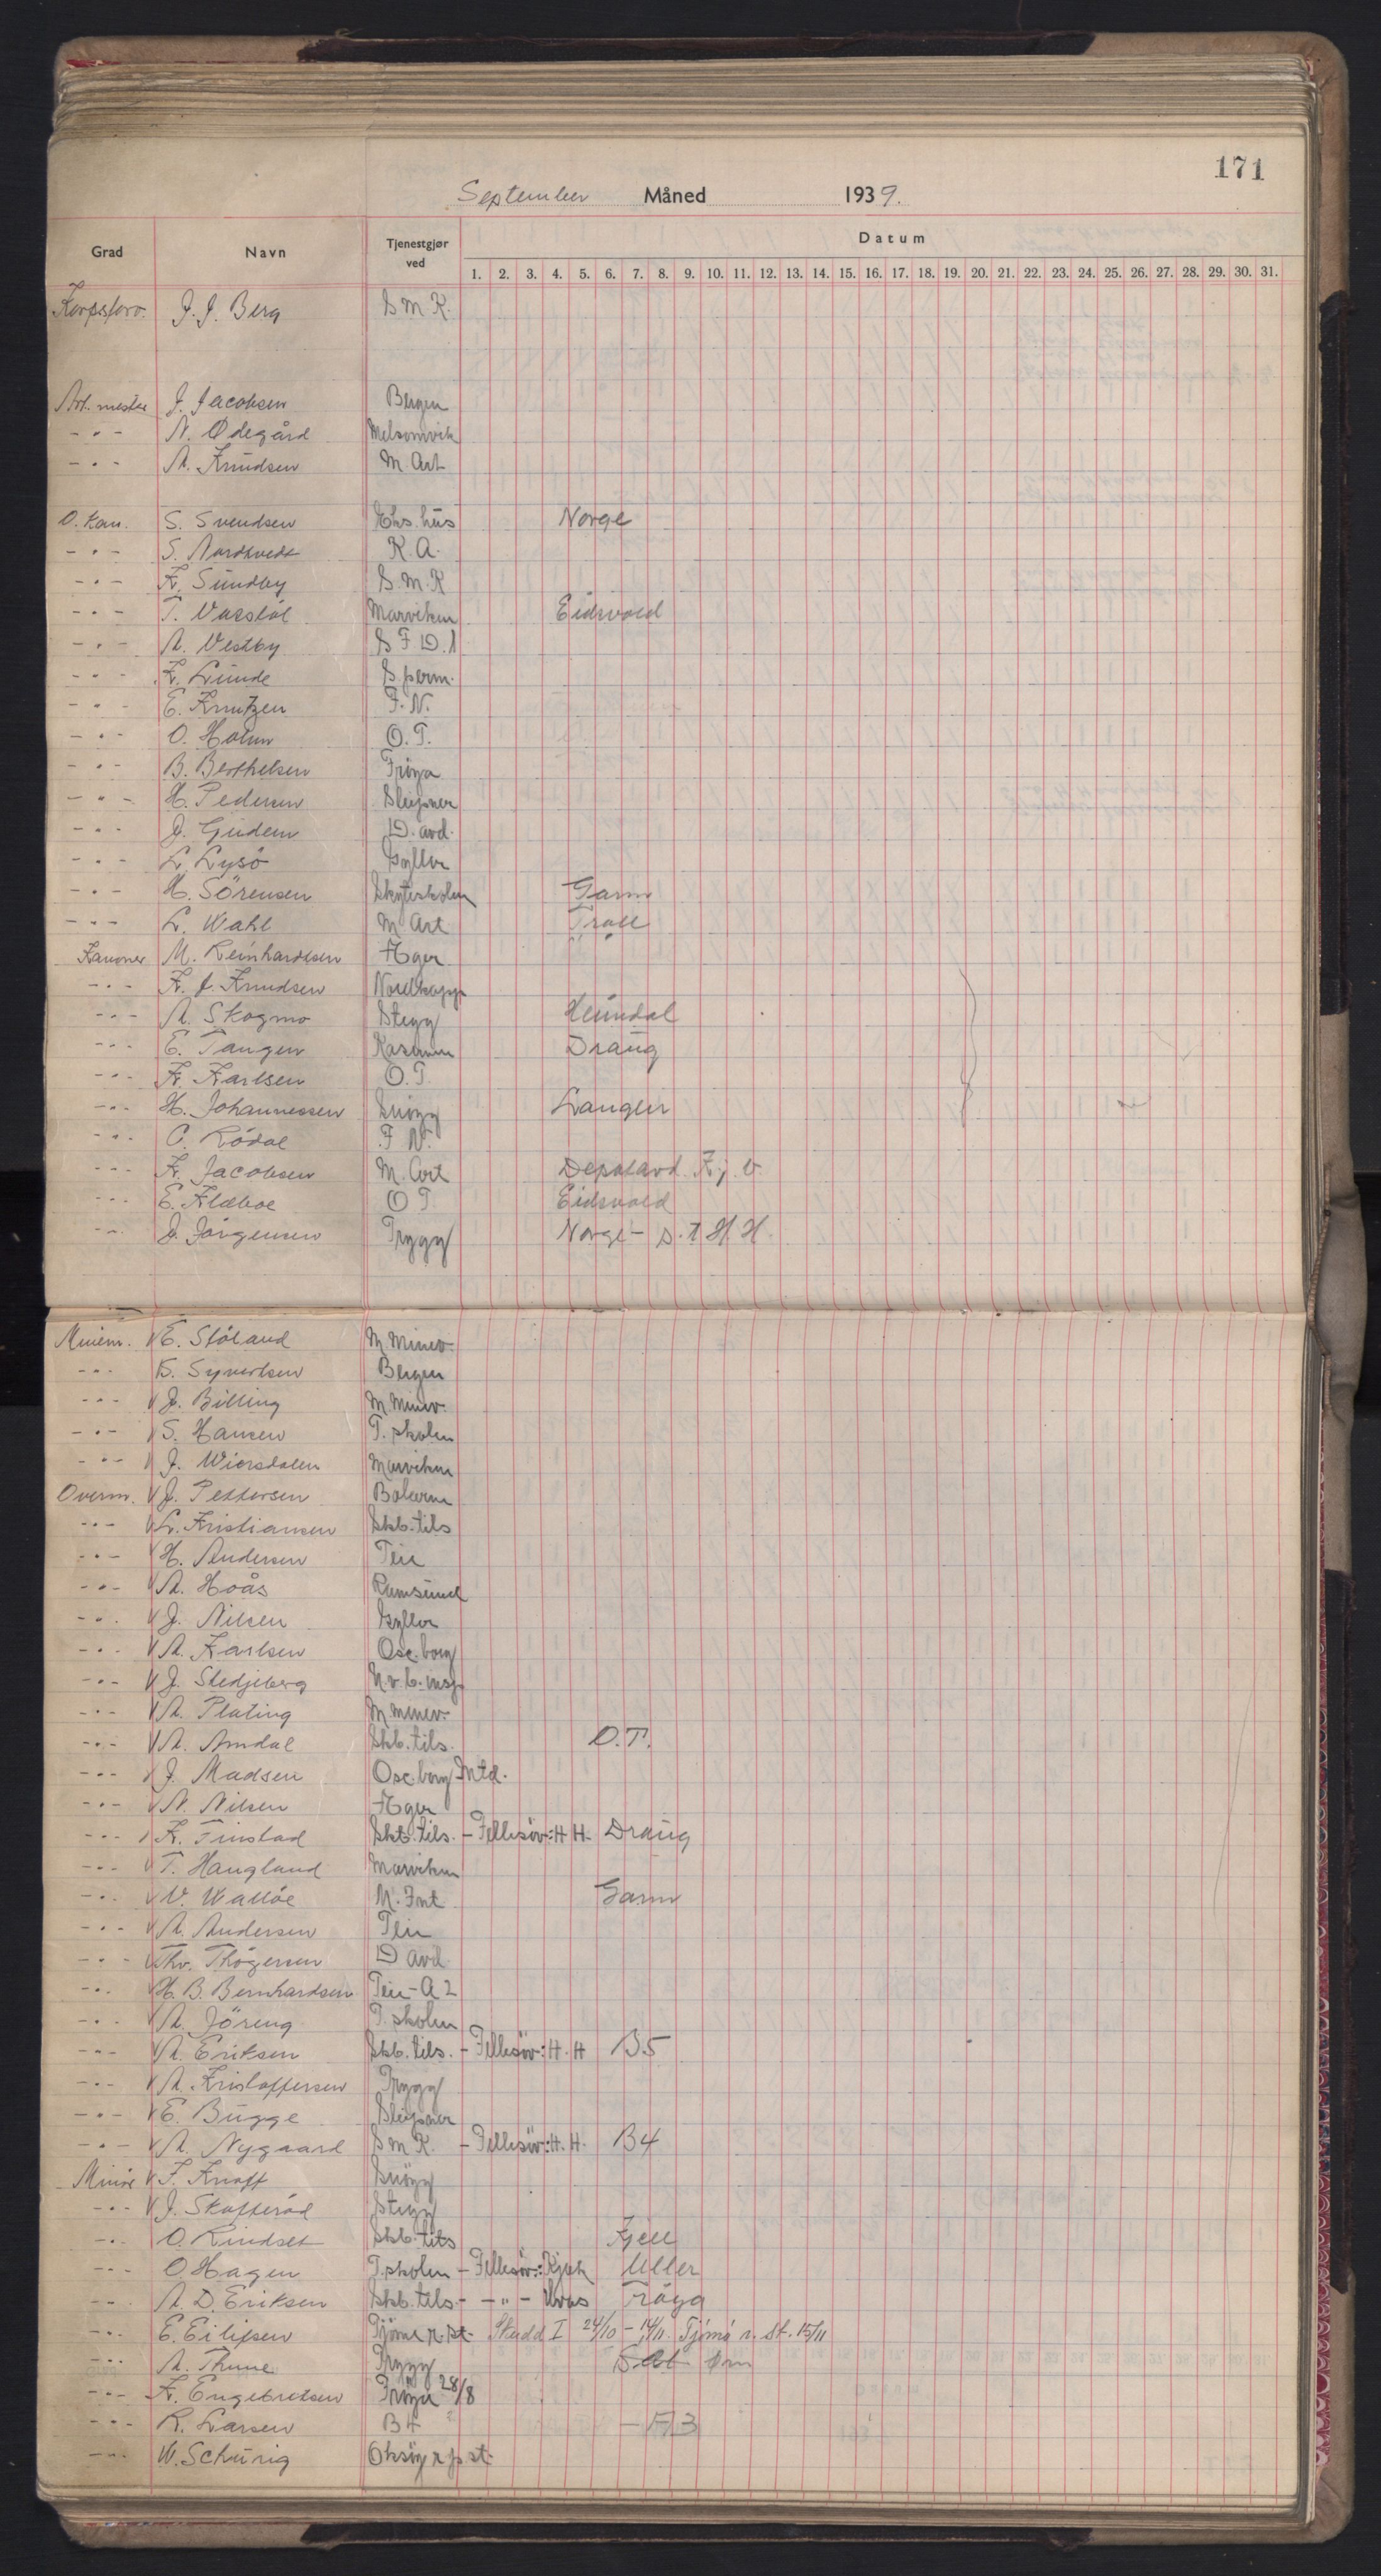 171
September Måned 1939.
Grad Navn Tjenestgjør ved Datum
1. 2. 3. 4. 5. 6. 7. 8. 9. 10. 11. 12. 13. 14. 15. 16. 17. 18. 19. 20. 21. 22. 23. 24. 25. 26. 27. 28. 29. 30. 31.
J. J. Berg S M K.
Art. mester J. Jacobsen Bergen
- " - N. Ødegård Melsomvik
- " - A. Knudsen M. Art
O. kan. S. Svendsen Eks. hus Norge
- " - S. Nordtvedt K. A.
- " - K. Sundby S. M. K
- " - T. Vasstøl Marviken Eidsvold
- " - A. Vestby S F D. 1
- " - K. Lunde S. perm.
- " - E. Knutzen F. N.
- " - O. Holm O. T.
- " - B. Berthelsen Frøya
- " - H. Pedersen Sleipner
- " - J. Gudem D. avd.
- " - L. Lysö Gyller
- " - H. Sörensen Skyteskolen Garm
- " - L. Wahl M Art Troll
Kanoner M. Reinhardtsen Æger
- " - K. J. Knudsen Nordkapp
- " - A. Skogmo Stegg Heimdal
- " - E. Tangen Kasernen Draug
- " - K. Karlsen O. T.
- " - H. Johannessen Snögg Laugen
- " - O. Rödal F N.
- " - K. Jacobsen M. Art Depotavd. Kj. v.
- " - E. Flæboe O T. Eidsvold
- " - J. Jörgensen Trygg Norge - s. t H. H.
Minem. E. Stöland M. Minev.
- " - B. Syvertsen Bergen
- " - J. Billing M. Minev.
- " - S. Hansen T. skolen
- " - J. Wiersdalen Marviken
Overm. J. Pettersen Bolærne
- " - L. Kristiansen Skb. tils
- " - H. Andersen Teie
- " - A. Hoås Ramsund
- " - J. Nilsen Gyller
- " - A. Karlsen Osc. borg
- " - J. Stedjeberg U. v. b. insp
- " - A. Plating M minev.
- " - A. Amdal Skb. tils. O. T.
- " - J. Madsen Osc. borg Mtd.
- " - N. Nilsen Æger
- " - K. Tinstad Skb. tils. - Fellesöv: H H. Draug
- " - T. Haugland Marviken
- " - V. Wallöe M. Int Garm
- " - A. Andersen Teie
- " - Thv. Thögersen D avd.
- " - H. B. Bernhardsen Teie - A 2
- " - A. Jöreng T. skolen
- " - A. Eriksen Skb. tils. - Fellesöv: H. H B.5
- " - A. Kristoffersen Trygg
- " - E. Bugge Sleipner
- " - A. Nygaard S M K. - Fellesöv: H. H. B4
Minör F. Knoff Snögg
- " - J. Skofteröd Stegg
- " - O. Rindset Skb. tils Kjell
- " - O Hagen T. skolen - Fellesöv: Kjek Uller
- " - A. D. Eriksen Skb. tils - - " - Kvas Fröya
- " - E. Eilifsen Tjöme r. st. Skudd I 24/10 - 14/11. Tjömö r. st. 15/11
- " - A. Thune Trygg Örn
- " - K. Engebretsen Fröya 28/8
- " - R. Larsen B4 - A3
- " - W. Schurig Oksöy r. p. st.